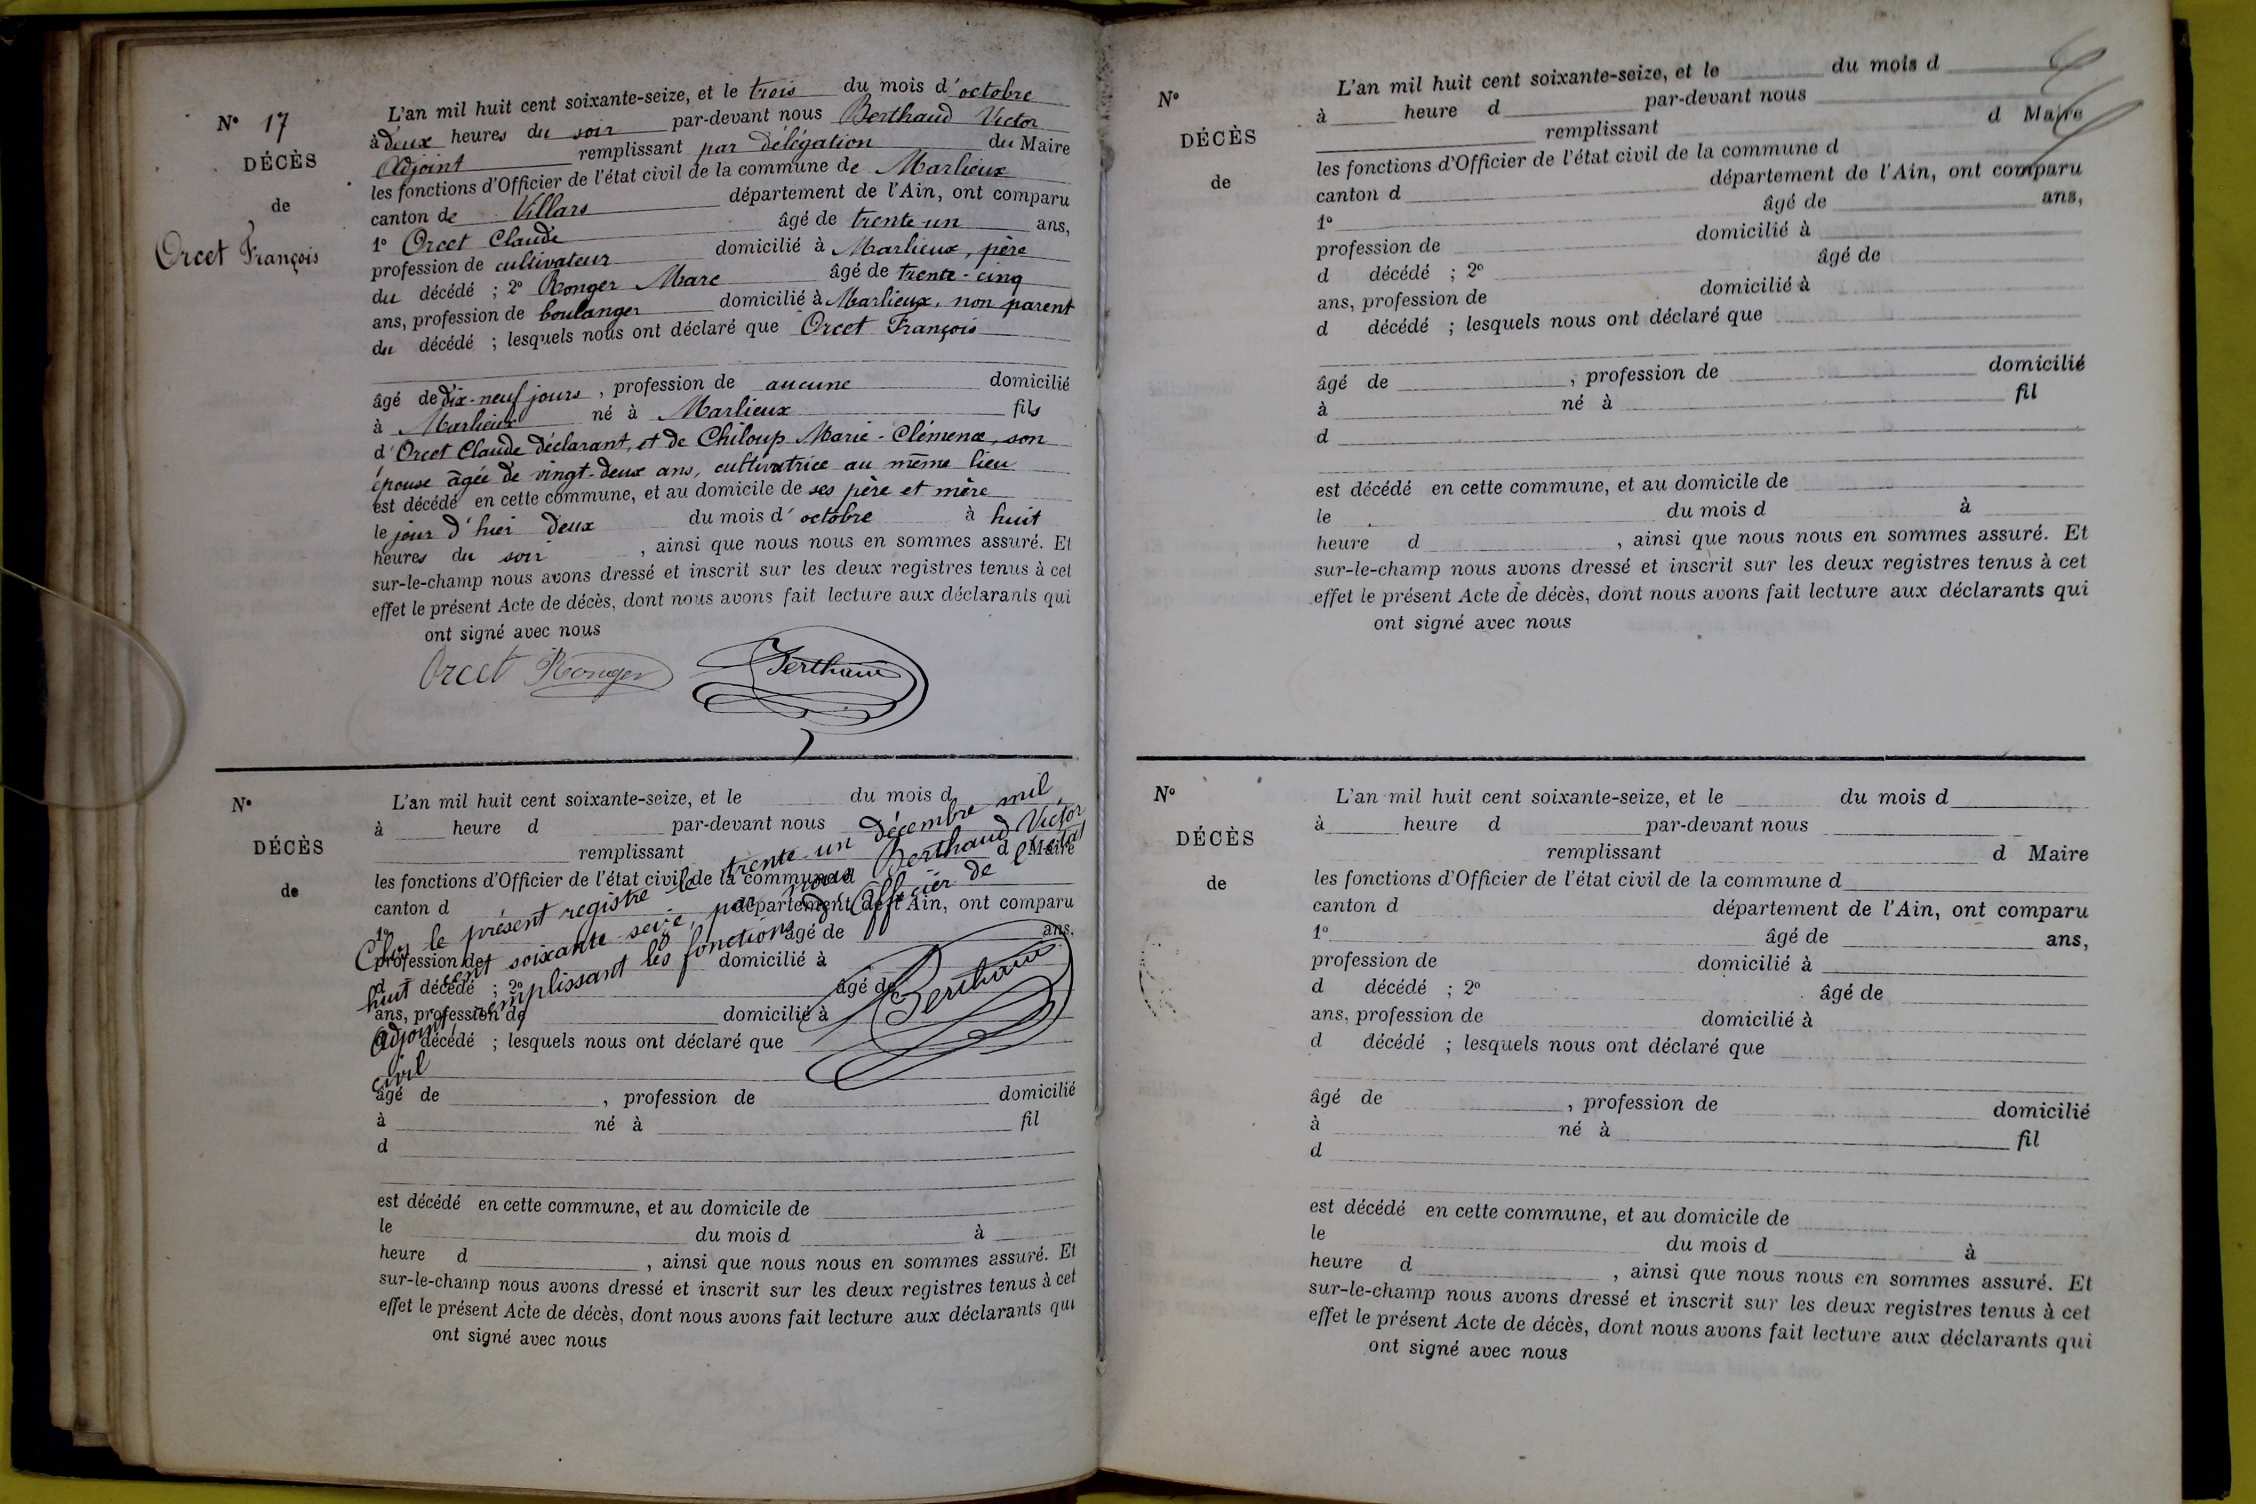 N° 17
DÉCÈS
de
Orcet François
L'an mil huit cent soixante-seize, et le trois du mois d'octobre
à deux heures du soir par-devant nous Berthaud Victor
Adjoint remplissant par délégation du Maire
les fonctions d'Officier de l'état civil de la commune de Marlieux
canton de Villars département de l'Ain, ont comparu
1° Orcet Claude âgé de trente-un ans,
profession de cultivateur domicilié à Marlieux, père
du décédé ; 2° Ronger Marc âgé de trente-cinq
ans, profession de boulanger domicilié à Marlieux, non parent
du décédé ; lesquels nous ont déclaré que Orcet François
âgé de dix-neuf jours, profession de aucune domicilié
à Marlieux né à Marlieux fils
d'Orcet Claude déclarant, et de Chiloup Marie-Clémence, son
épouse âgée de vingt-deux ans, cultivatrice au même lieu
est décédé en cette commune, et au domicile de ses père et mère
le jour d'hier deux du mois d'octobre à huit
heures du soir, ainsi que nous nous en sommes assuré. Et
sur-le-champ nous avons dressé et inscrit sur les deux registres tenus à cet
effet le présent Acte de décès, dont nous avons fait lecture aux déclarants qui
ont signé avec nous
Orcet Ronger Berthaud
N°
DÉCÈS
de
L'an mil huit cent soixante-seize, et le du mois d
à heure d par-devant nous
remplissant d Maire
les fonctions d'Officier de l'état civil de la commune d
canton d département de l'Ain, ont comparu
1° âgé de ans,
profession de domicilié à
d décédé ; 2° âgé de
ans, profession de domicilié à
d décédé ; lesquels nous ont déclaré que
âgé de , profession de domicilié
à né à fil
d
est décédé en cette commune, et au domicile de
le du mois d à
heure d , ainsi que nous nous en sommes assuré. Et
sur-le-champ nous avons dressé et inscrit sur les deux registres tenus à cet
effet le présent Acte de décès, dont nous avons fait lecture aux déclarants qui
ont signé avec nous
Clos le présent registre le trente-un décembre mil
huit cent soixante seize, par nous Berthaud Victor
Adjoint, remplissant les fonctions d'Officier de l'état
civil
Berthaud
N°
DÉCÈS
de
L'an mil huit cent soixante-seize, et le du mois d
à heure d par-devant nous
remplissant d Maire
les fonctions d'Officier de l'état civil de la commune d
canton d département de l'Ain, ont comparu
1° âgé de ans,
profession de domicilié à
d décédé ; 2° âgé de
ans, profession de domicilié à
d décédé ; lesquels nous ont déclaré que
âgé de , profession de domicilié
à né à fil
d
est décédé en cette commune, et au domicile de
le du mois d à
heure d , ainsi que nous nous en sommes assuré. Et
sur-le-champ nous avons dressé et inscrit sur les deux registres tenus à cet
effet le présent Acte de décès, dont nous avons fait lecture aux déclarants qui
ont signé avec nous
N°
DÉCÈS
de
L'an mil huit cent soixante-seize, et le du mois d
à heure d par-devant nous
remplissant d Maire
les fonctions d'Officier de l'état civil de la commune d
canton d département de l'Ain, ont comparu
1° âgé de ans,
profession de domicilié à
d décédé ; 2° âgé de
ans, profession de domicilié à
d décédé ; lesquels nous ont déclaré que
âgé de , profession de domicilié
à né à fil
d
est décédé en cette commune, et au domicile de
le du mois d à
heure d , ainsi que nous nous en sommes assuré. Et
sur-le-champ nous avons dressé et inscrit sur les deux registres tenus à cet
effet le présent Acte de décès, dont nous avons fait lecture aux déclarants qui
ont signé avec nous